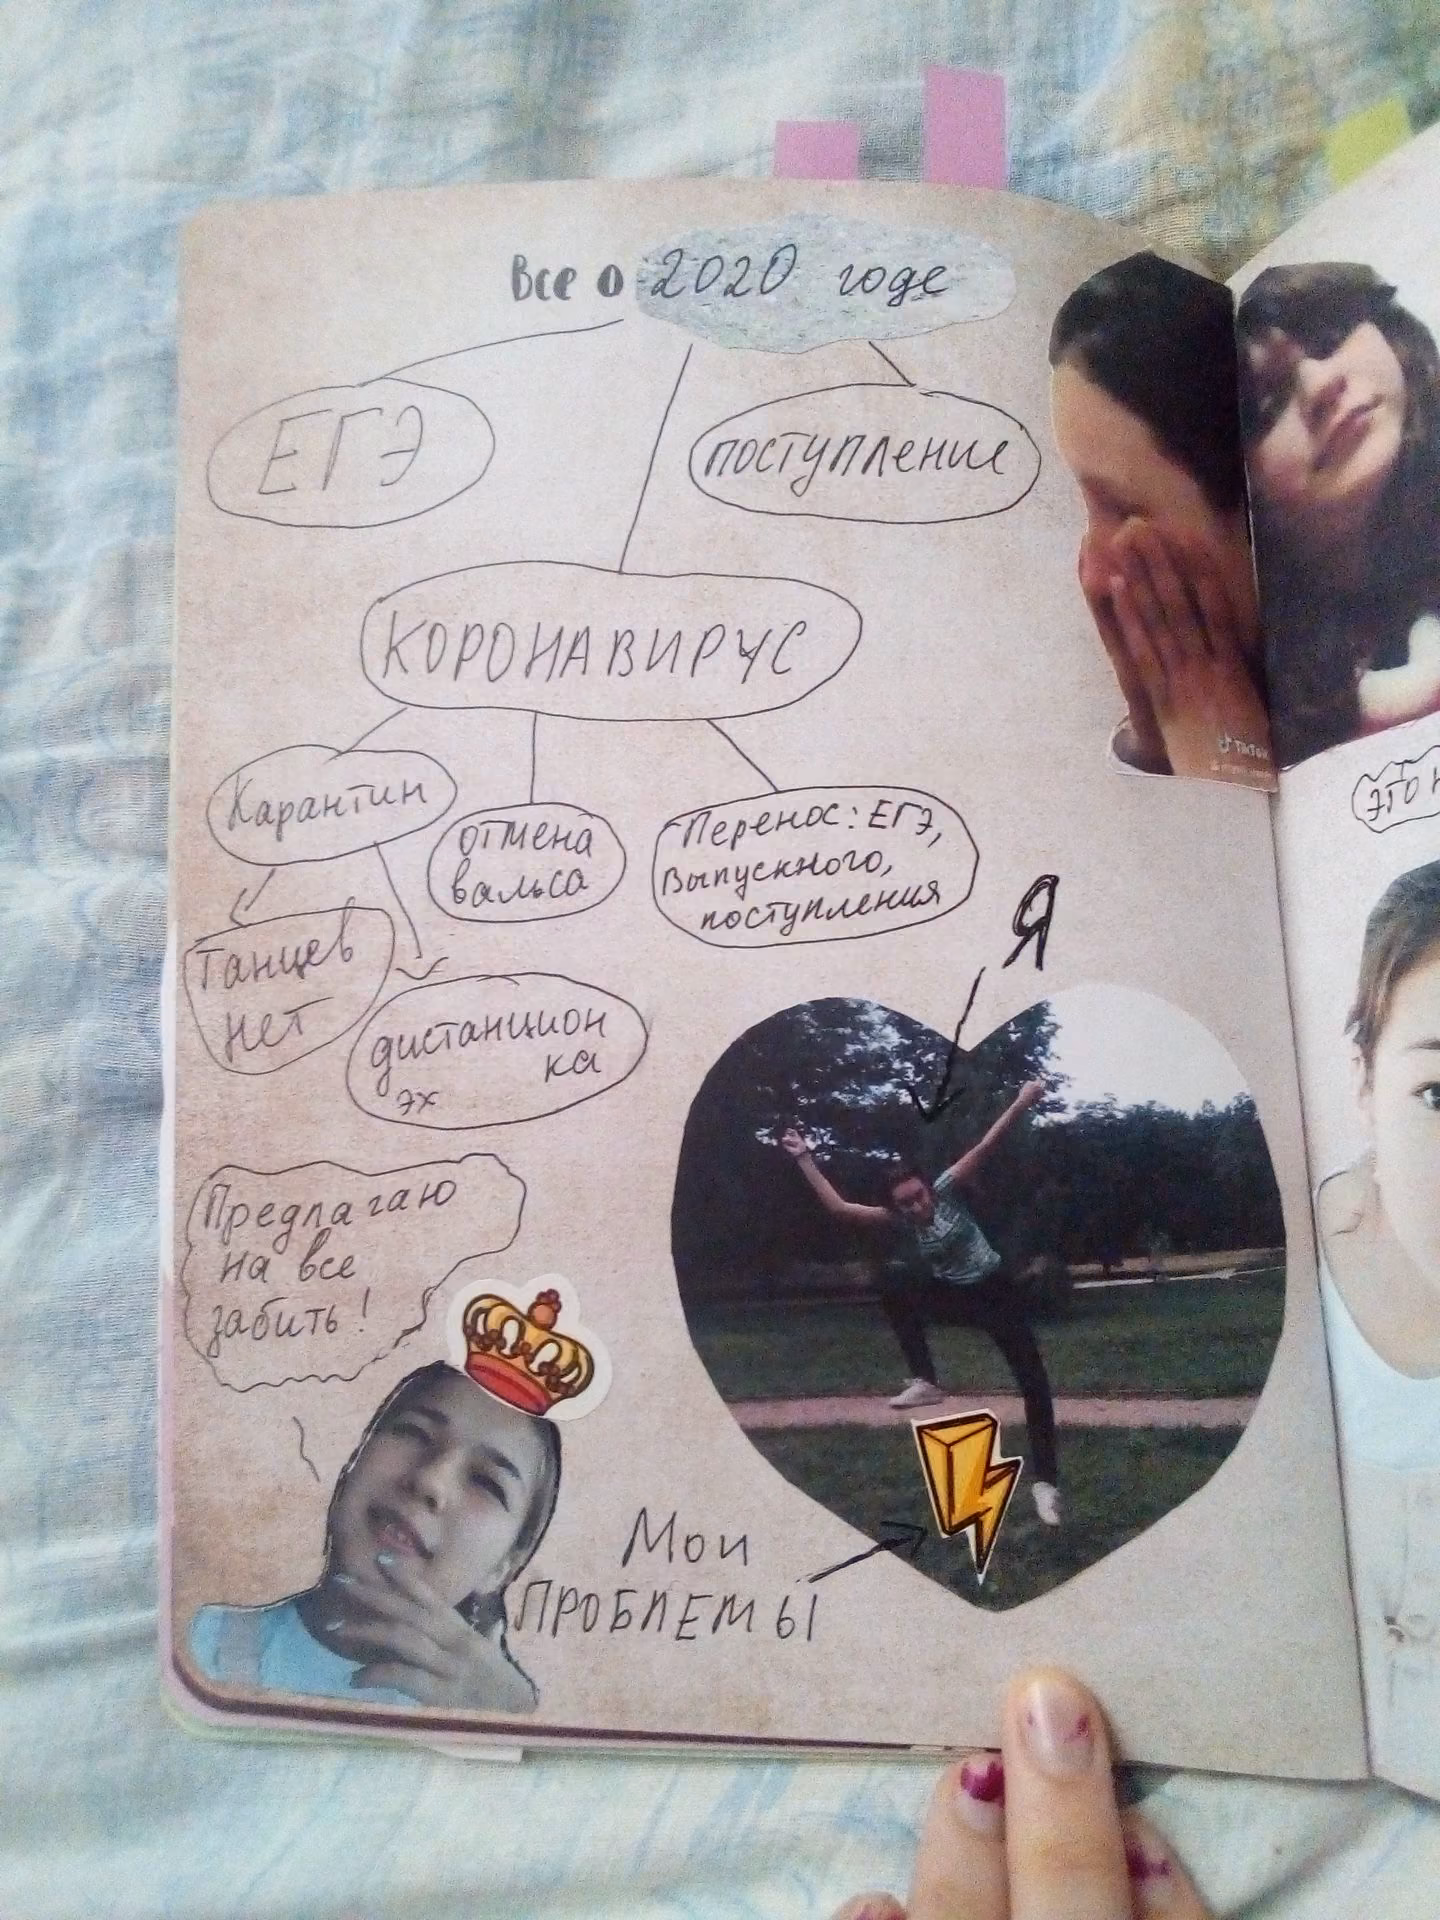 Все о 2020 годе
ЕГЭ
поступление
КОРОНАВИРУС
Карантин
отмена
вальса
Перенос: ЕГЭ,
выпускного,
поступления
Танцев
нет
дистанцион
ка
эх
Я
TikTok
Предлагаю
на все
забить!
Мои
ПРОБЛЕМЫ